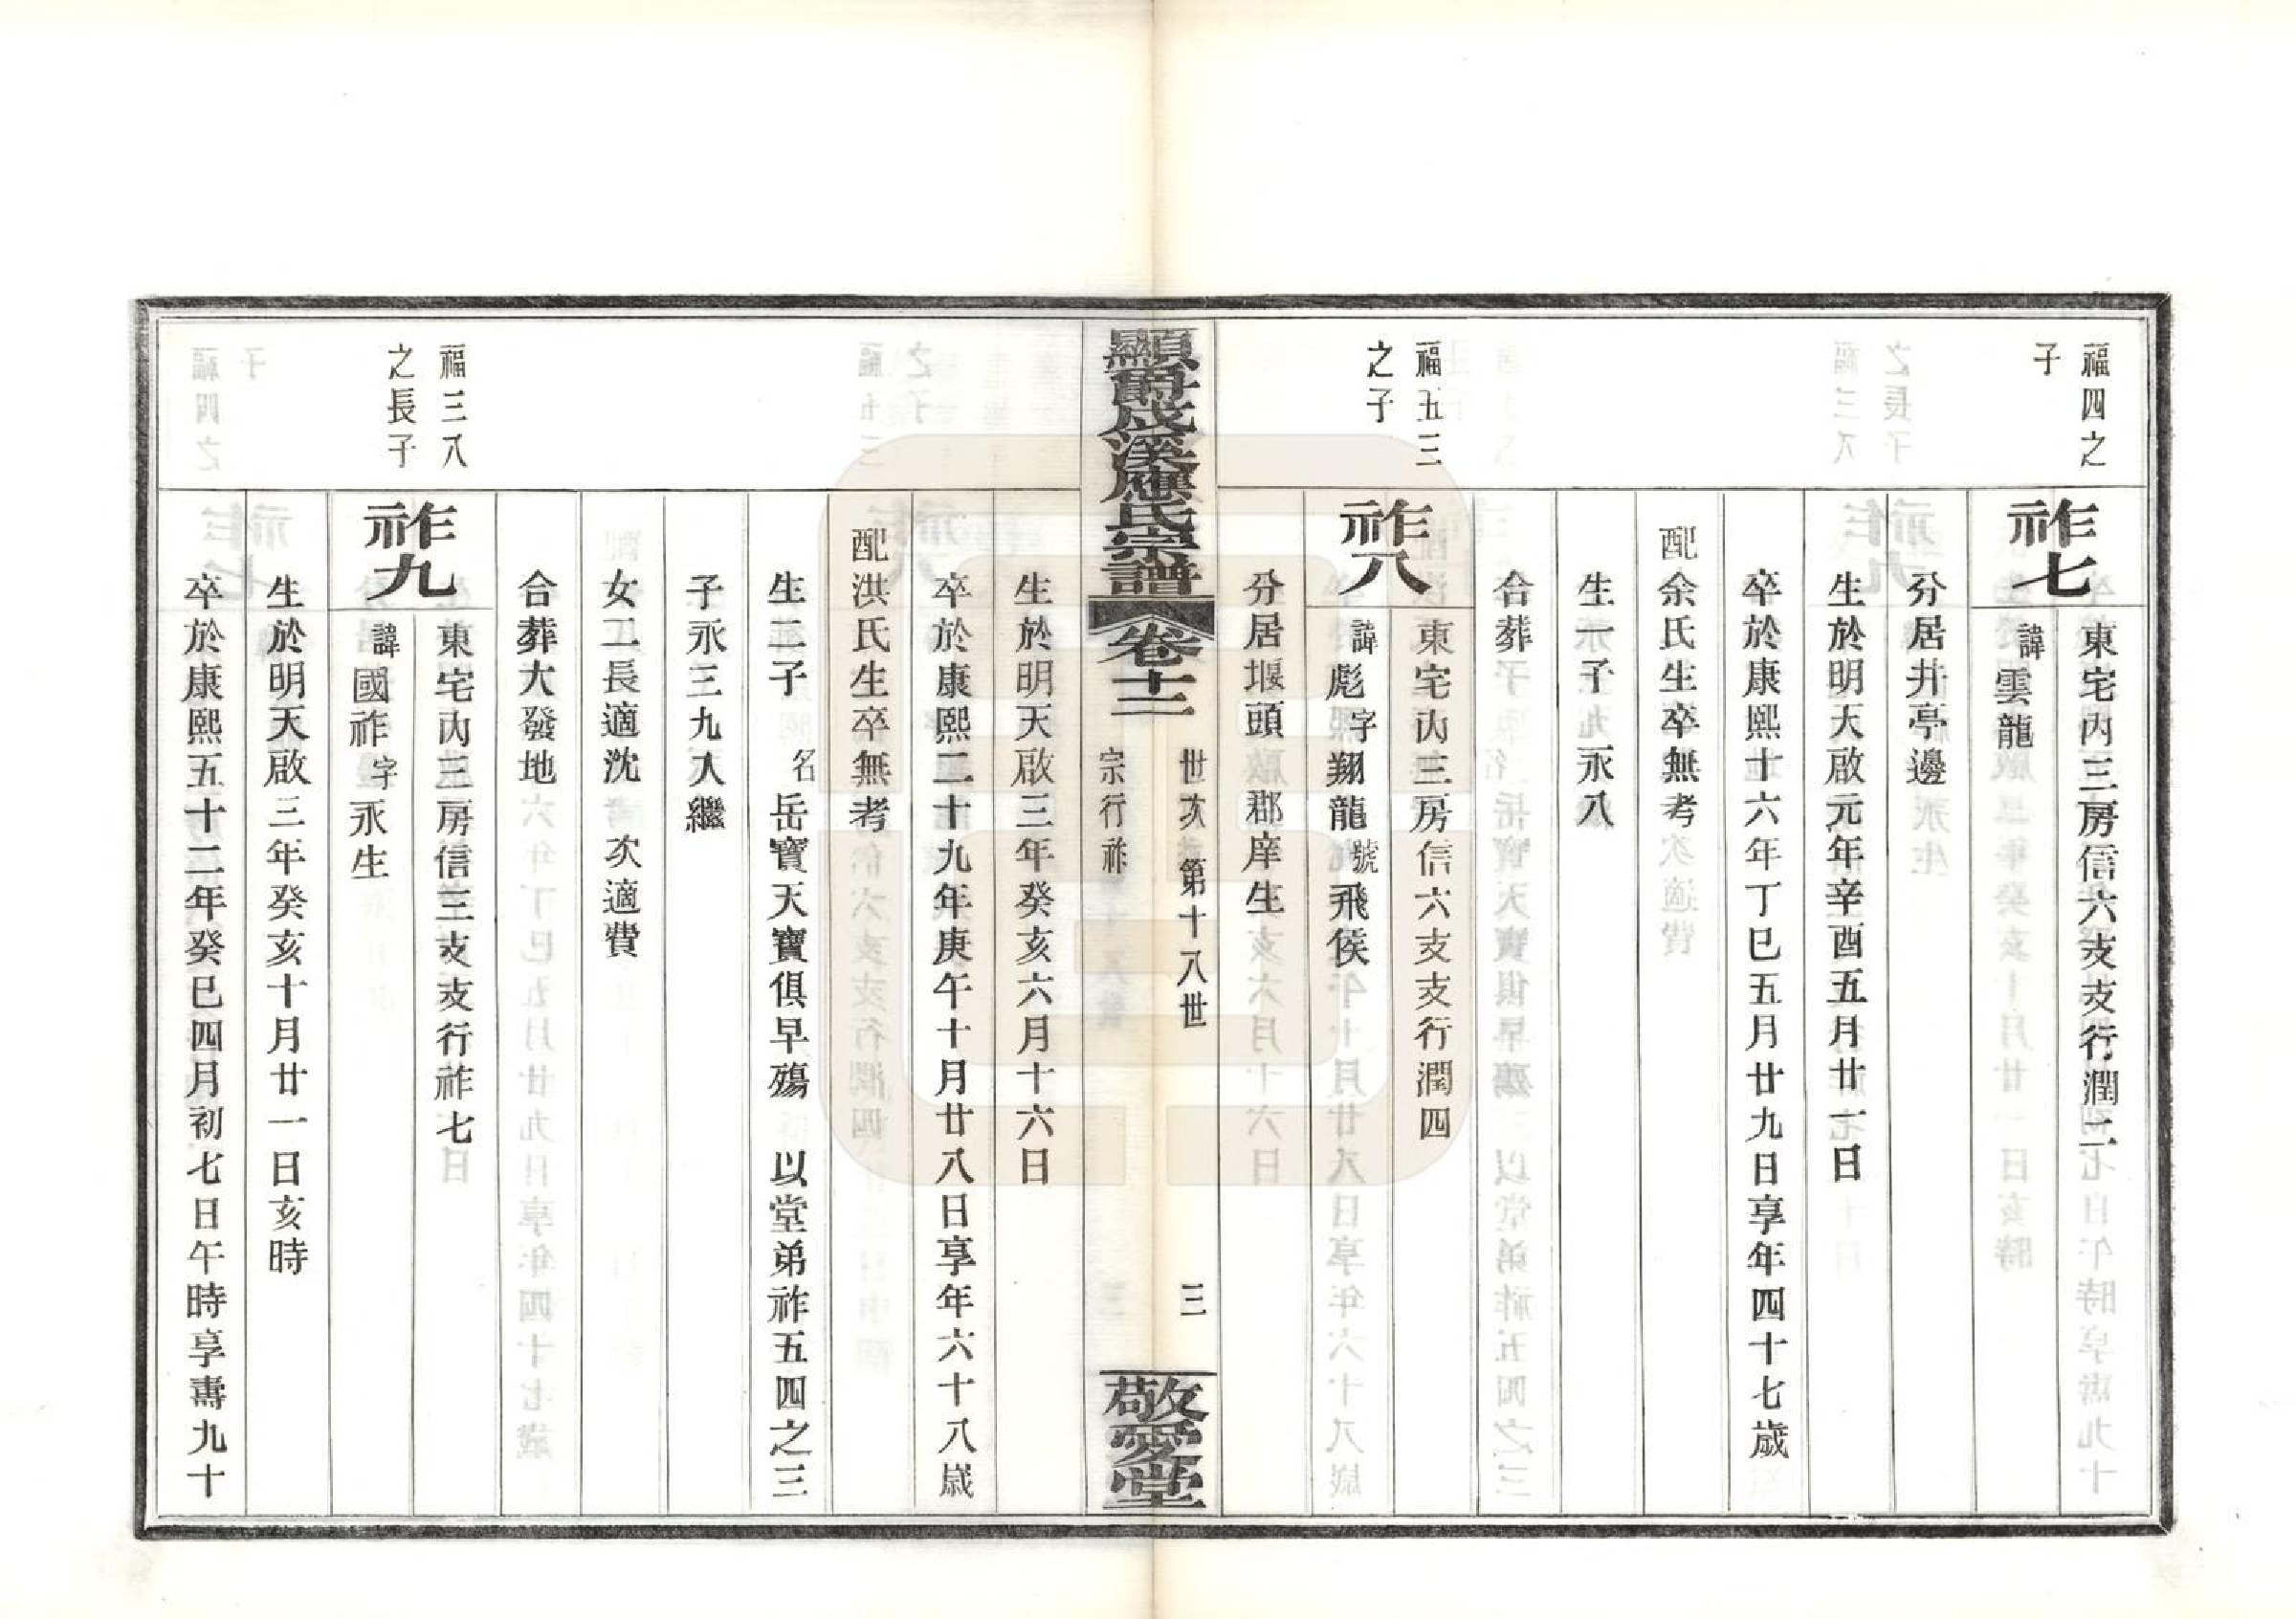 福四之
子
祚七
東宅內三房信六支支行潤二
諱雲龍
分居井亭邊
生於明天啟元年辛酉五月廿一日
卒於康熙十六年丁巳五月廿九日享年四十七歲
配余氏生卒無考
生一子永八
合葬
福五三
之子
祚八
東宅內三房信六支支行潤四
諱彪字翔龍號飛侯
分居堰頭郡庠生
顯爵戍溪應氏宗譜
卷十二
世次第十八世
宗行祚
三
敬愛堂
生於明天啟三年癸亥六月十六日
卒於康熙二十九年庚午十月廿八日享年六十八歲
配洪氏生卒無考
生二子名岳寶天寶俱早殤以堂弟祚五四之三
子永三九入繼
女二長適沈次適費
合葬大發地
福三八
之長子
祚九
東宅內三房信三支支行祚七
諱國祚字永生
生於明天啟三年癸亥十月廿一日亥時
卒於康熙五十二年癸巳四月初七日午時享壽九十